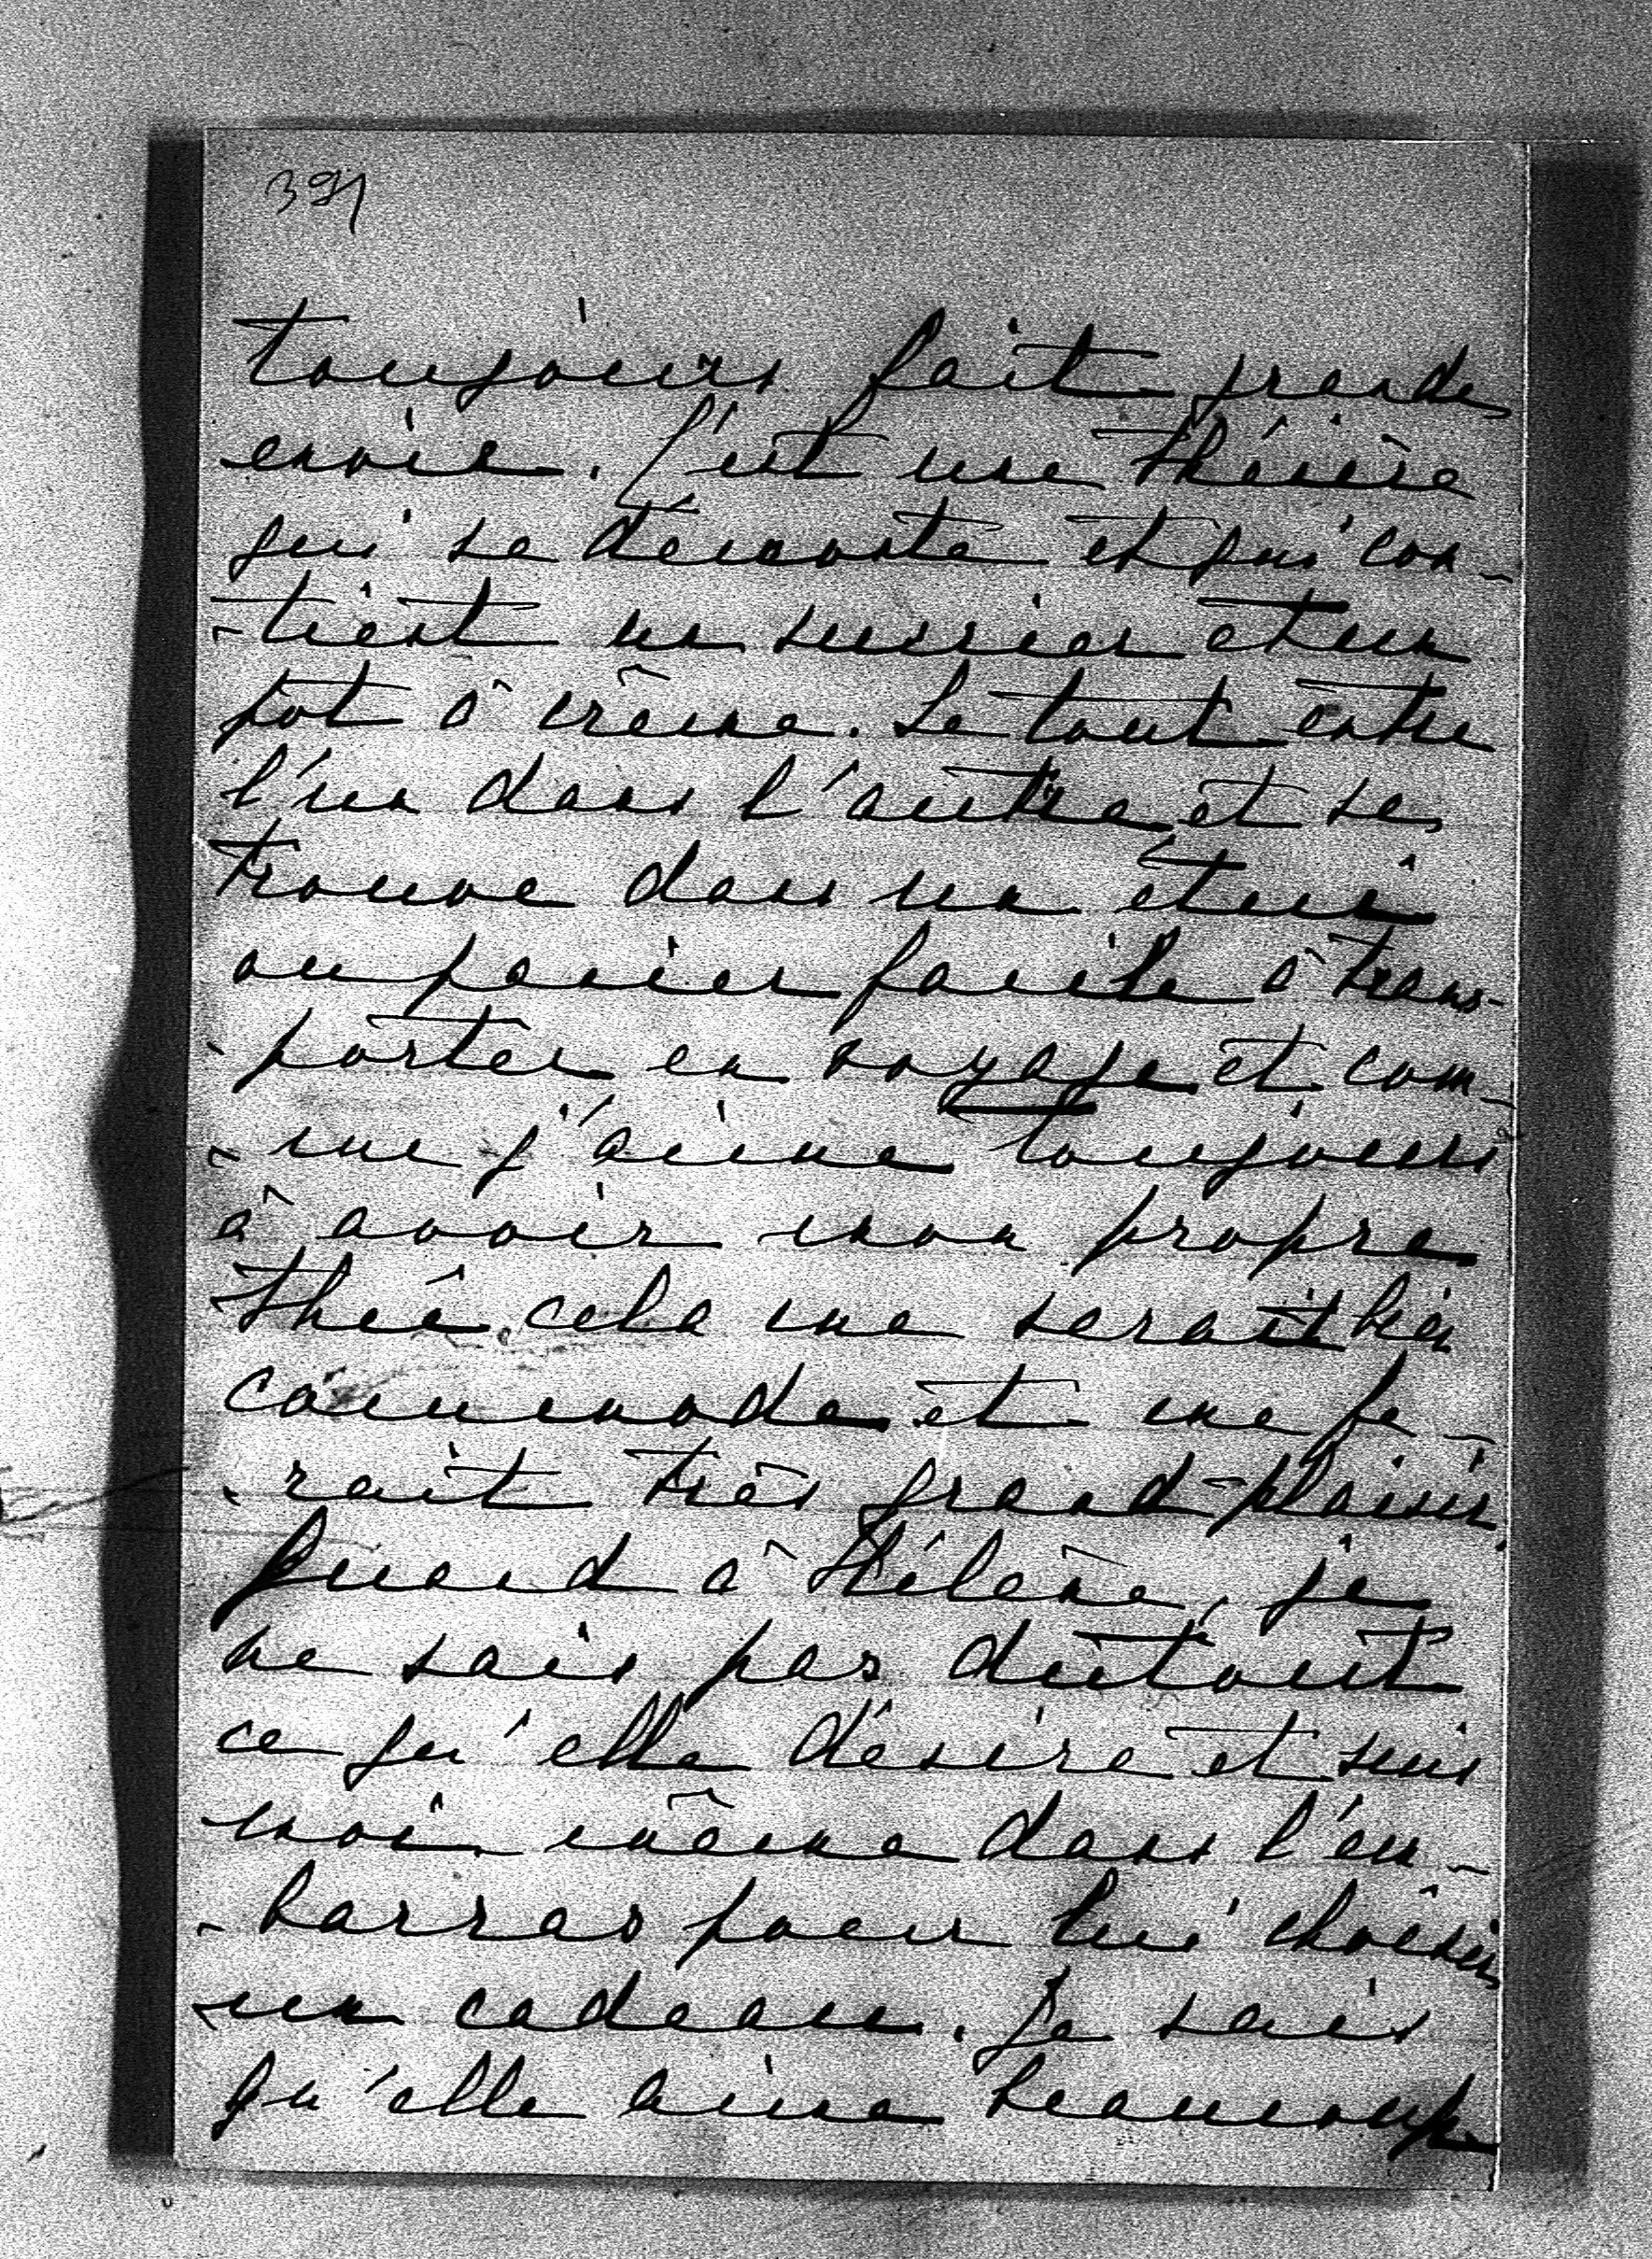 391
toujours fait grande
envie. C'est une théière
qui se démonte et qui con-
-tient un sucrier et un
pot à crème. Le tout entre
l'un dans l'autre et se
trouve dans un étui
ou panier facile à trans-
-porter en voyage et com-
-me j'aime toujours
à avoir mon propre
thé cela me serait bien
commode et me fe-
-rait très grand-plaisir.
Quand à Hélène, je
ne sais pas dutout
ce qu'elle désire et suis
moi-même dans l'em-
-barras pour lui choisir
un cadeau. Je sais
qu'elle aime beaucoup